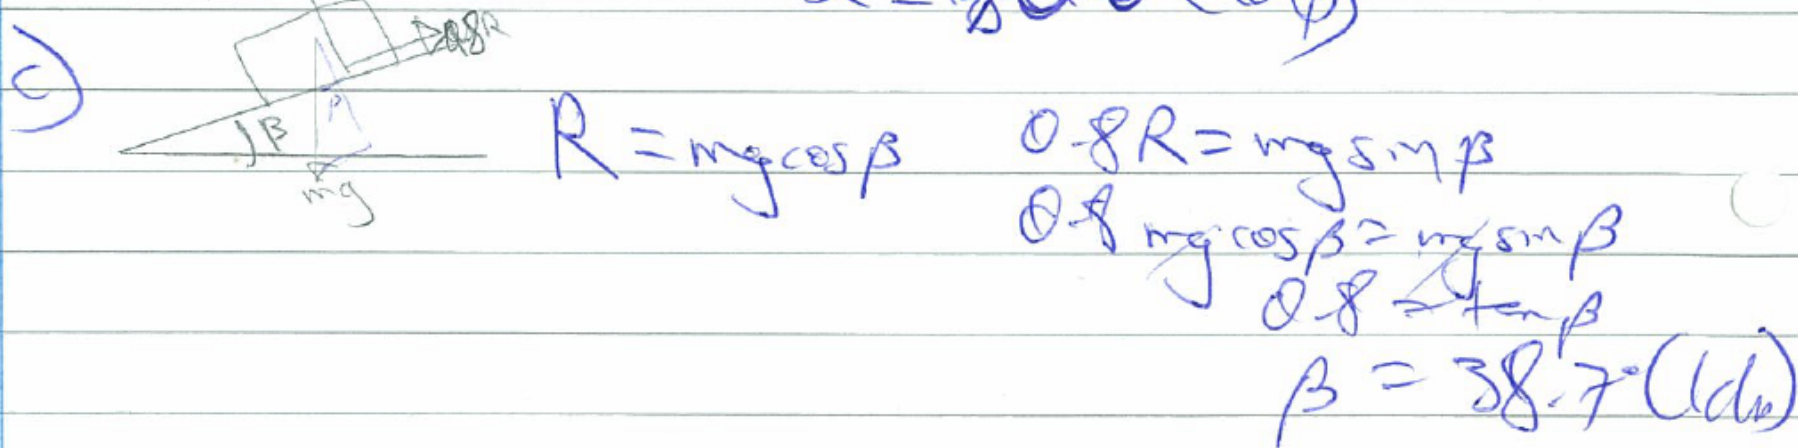 c)
0.8R
β
β
mg
R = mgcosβ
0.8R = mgsinβ
0.8 mgcosβ = mgsinβ
0.8 = tanβ
β = 38.7° (1dp)